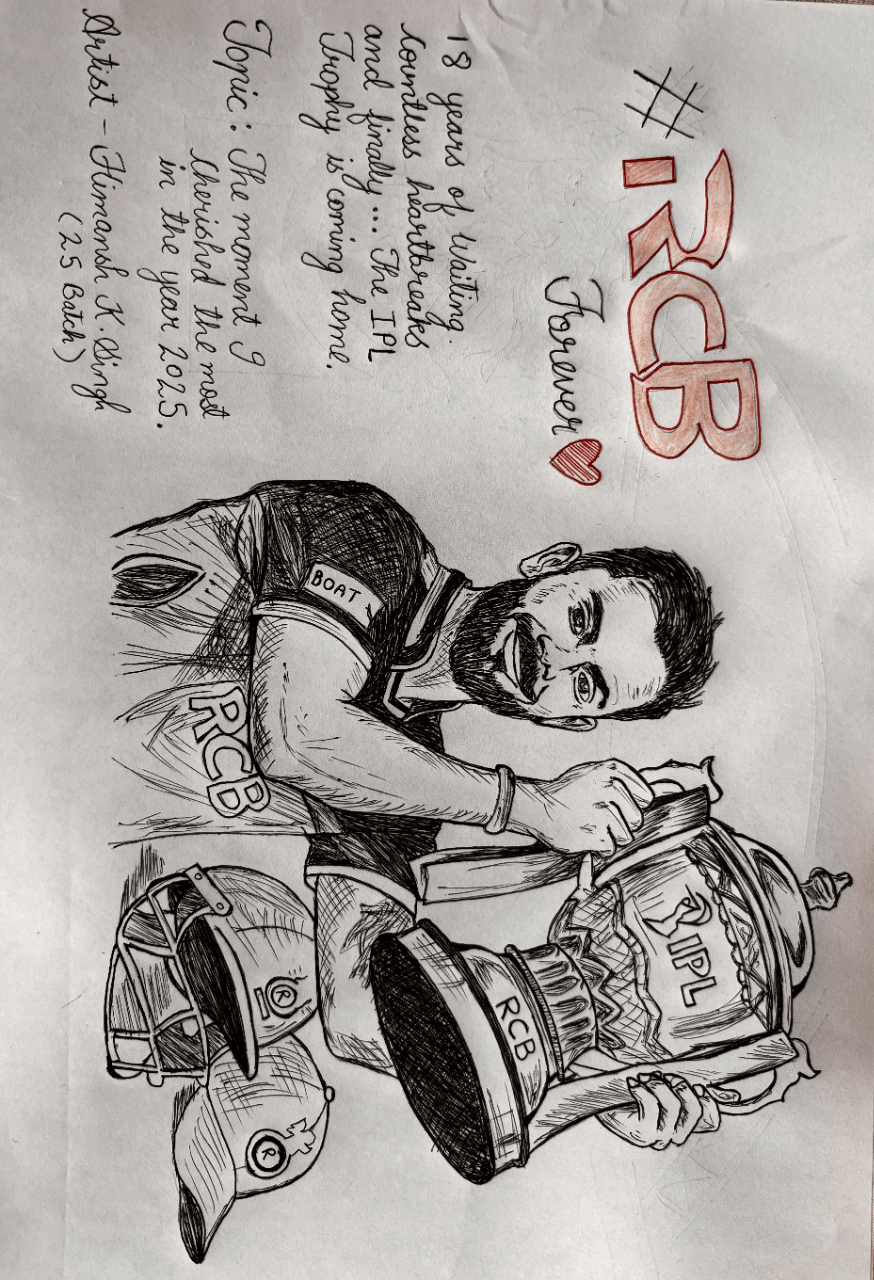 #RCB
Forever
18 years of Waiting.
Countless heartbreaks
and finally... The IPL
Trophy is coming home.
Topic : The moment I
Cherishd the most
in the year 2025.
Artist - Himansh K. Singh
(25 Batch)
BOAT
RCB
IPL
RCB
R
R